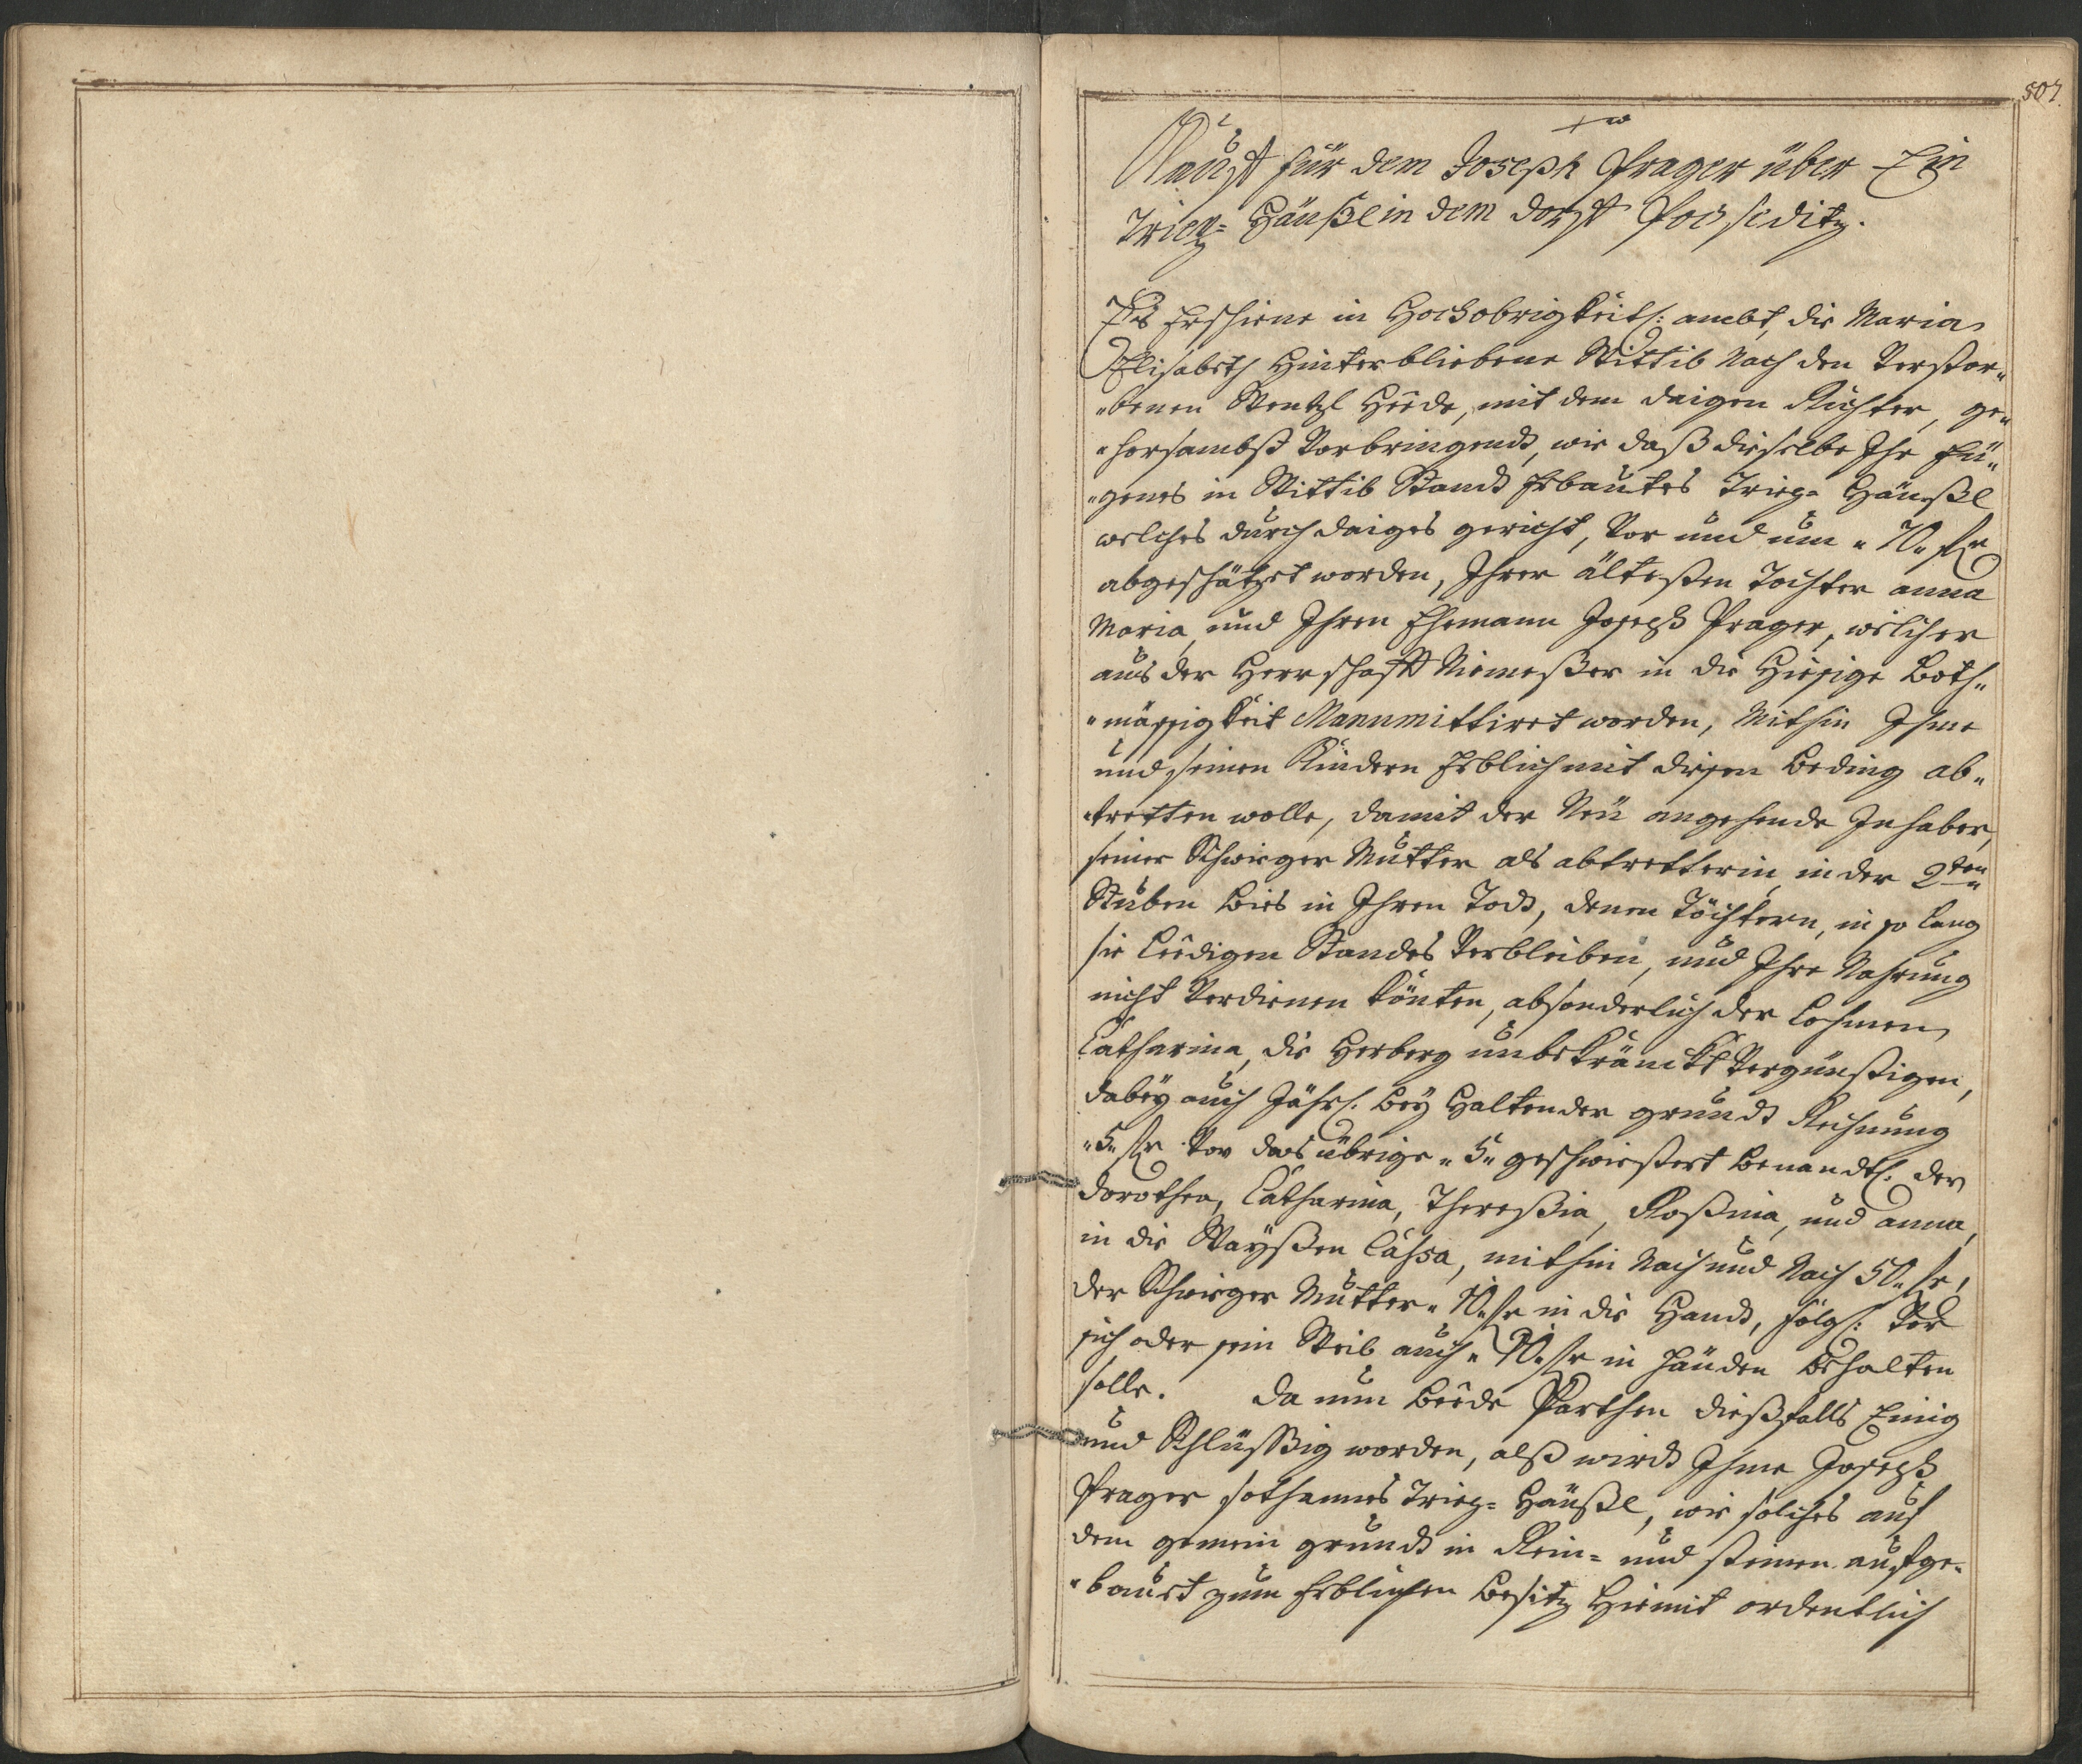 507.
Kauff für dem Joseph Prager über Ein
Trieg= Häußl in dem dorff Posseditz.
Es Erschiene in Hochobrigkeitl: ambt, die Maria
Elisabeth Hinterbliebene Wittib Nach den Verstor„
„benen Wentzl Heÿde, mit dem daigen Richter, ge„
„horsambst Vorbringendt, wie daß dieselbe Ihr Eü„
„genes in Wittib Standt Erbautes Trieg= Häußl
welches durch daiges gericht, Vor und um „ 70 „ ßo
abgeschätzet worden, Ihrer ältesten Tochter anna
Maria, und Ihren Ehemann Joseph Prager, welcher
aus der Herrschafft Niemeßer in die Hiesige Both„
„mässigkeit Manumittiret worden, Mithin Ihme
und seinen Kindern Erblich mit diesen Beding ab„
„tretten wolle, damit der Neü angehende Inhaber,
seiner Schwieger Mutter als abtretterin in der 2ten
Stuben Bies in Ihren Todt, denen Töchtern, in so lang
sie Leedigen Standes Verbleiben, und Ihre Nahrung
nicht Verdienen könten, absonderlich der Lahmen
Catharina, die Herberg unbekränckt Vergünstigen,
dabeÿ auch Jährl. beÿ Haltender grundt Rechnung
„ 5 „ ßo Vor das übrige „ 5 „ geschwiestert Benandtl. der
Dorothea, Catharina, Theresia, Rosina, und anna,
in die Waÿßen Cassa, mithin Nach und Nach 50 „ ßo,
der Schwieger Mutter „ 10 „ ßo in die Handt, folgl: Vor
sich oder sein Weib auch „ 10 „ ßo in Händen Behalten
solle. Da nun Beede Parthen dießfalls Einig
und Schlüssig worden, alß wirdt Ihme Joseph
Prager sothannes Trieg= Häußl, wie solches auf
dem gemein grundt in Rein= und steinen aufge„
„bauet zum Erblichen Besitz Hiemit ordentlich